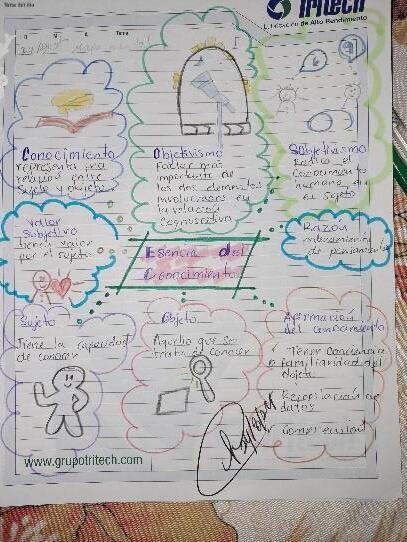 Tritech
Lubricación de Alto Rendimiento
D M A Tema
Conocimiento
representa una
relación entre
Sujeto y objeto
Objetivismo
Factor más
importante de
los dos elementos
involucrados en
la relación
Cognoscitiva
Subjetivismo
Radica el
conocimiento
humano en
el sujeto
Valor
Subjetivo
tienen valor
por el sujeto
Esencia del
Conocimiento
Razon
de pensamiento
Sujeto
Tiene la capacidad
de conocer
Objeto
Aquello que se
trata de conocer
Apropiación
del conocimiento
✓ Tener Conciencia
o familiaridad del
objeto
Recopilación de
datos
✓ Comprension
www.grupotritech.com